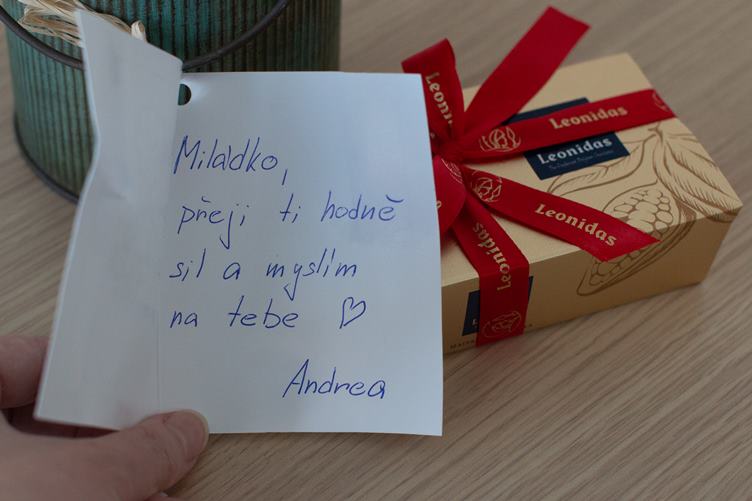 Miládko,
přeji ti hodně
sil a myslím
na tebe ♡
Andrea
Leonidas
Leonidas
Leonidas
Leonidas
Leonidas